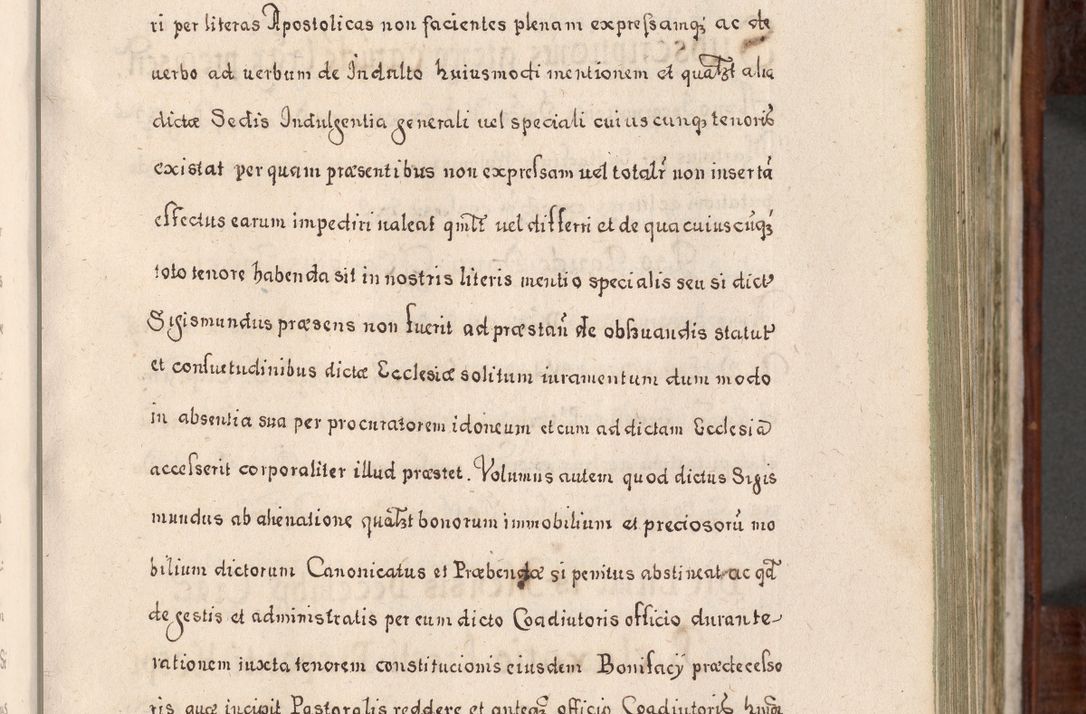 ri per literas Apostolicas non facientes plenam expreſsamqꝫ ac de
uerbo ad uerbum de Indulto huiusmodi mentionem et qual̃zt alia
dictæ Sedis Indulgentia generali uel speciali cuiuscunqꝫ tenoris
existat per quam præsentibus non expreſsam uel totalr̃ non insertã
effectus earum impediri ualeat qm̃lt uel differri et de qua cuiuscũqꝫ
toto tenore habenda sit in nostris literis mentio specialis seu si dict
Sigismundus præsens non fuerit ad præstañ de obſuandis statut
et consuetudinibus dictæ Ecclesiæ solitum iuramentum dum modo
in absentia sua per procuratorem idoneum et cum ad dictam Ecclesiã
acceſserit corporaliter illud præstet. Volumus autem quod dictus Sigis
mundus ab alienatione qual̃zt bonorum immobilium et preciosorũ mo
bilium dictorum Canonicatus et Præbendæ si penitus abstineat ac qđ
de gestis et administratis per eum dicto Coadiutoris officio durante
rationem iuxta tenorem constitucionis eiusdem Bonifacÿ prædeceſso
ris quæ incipit Pastoralis reddere et anteqꝫ officio Coadiutoris